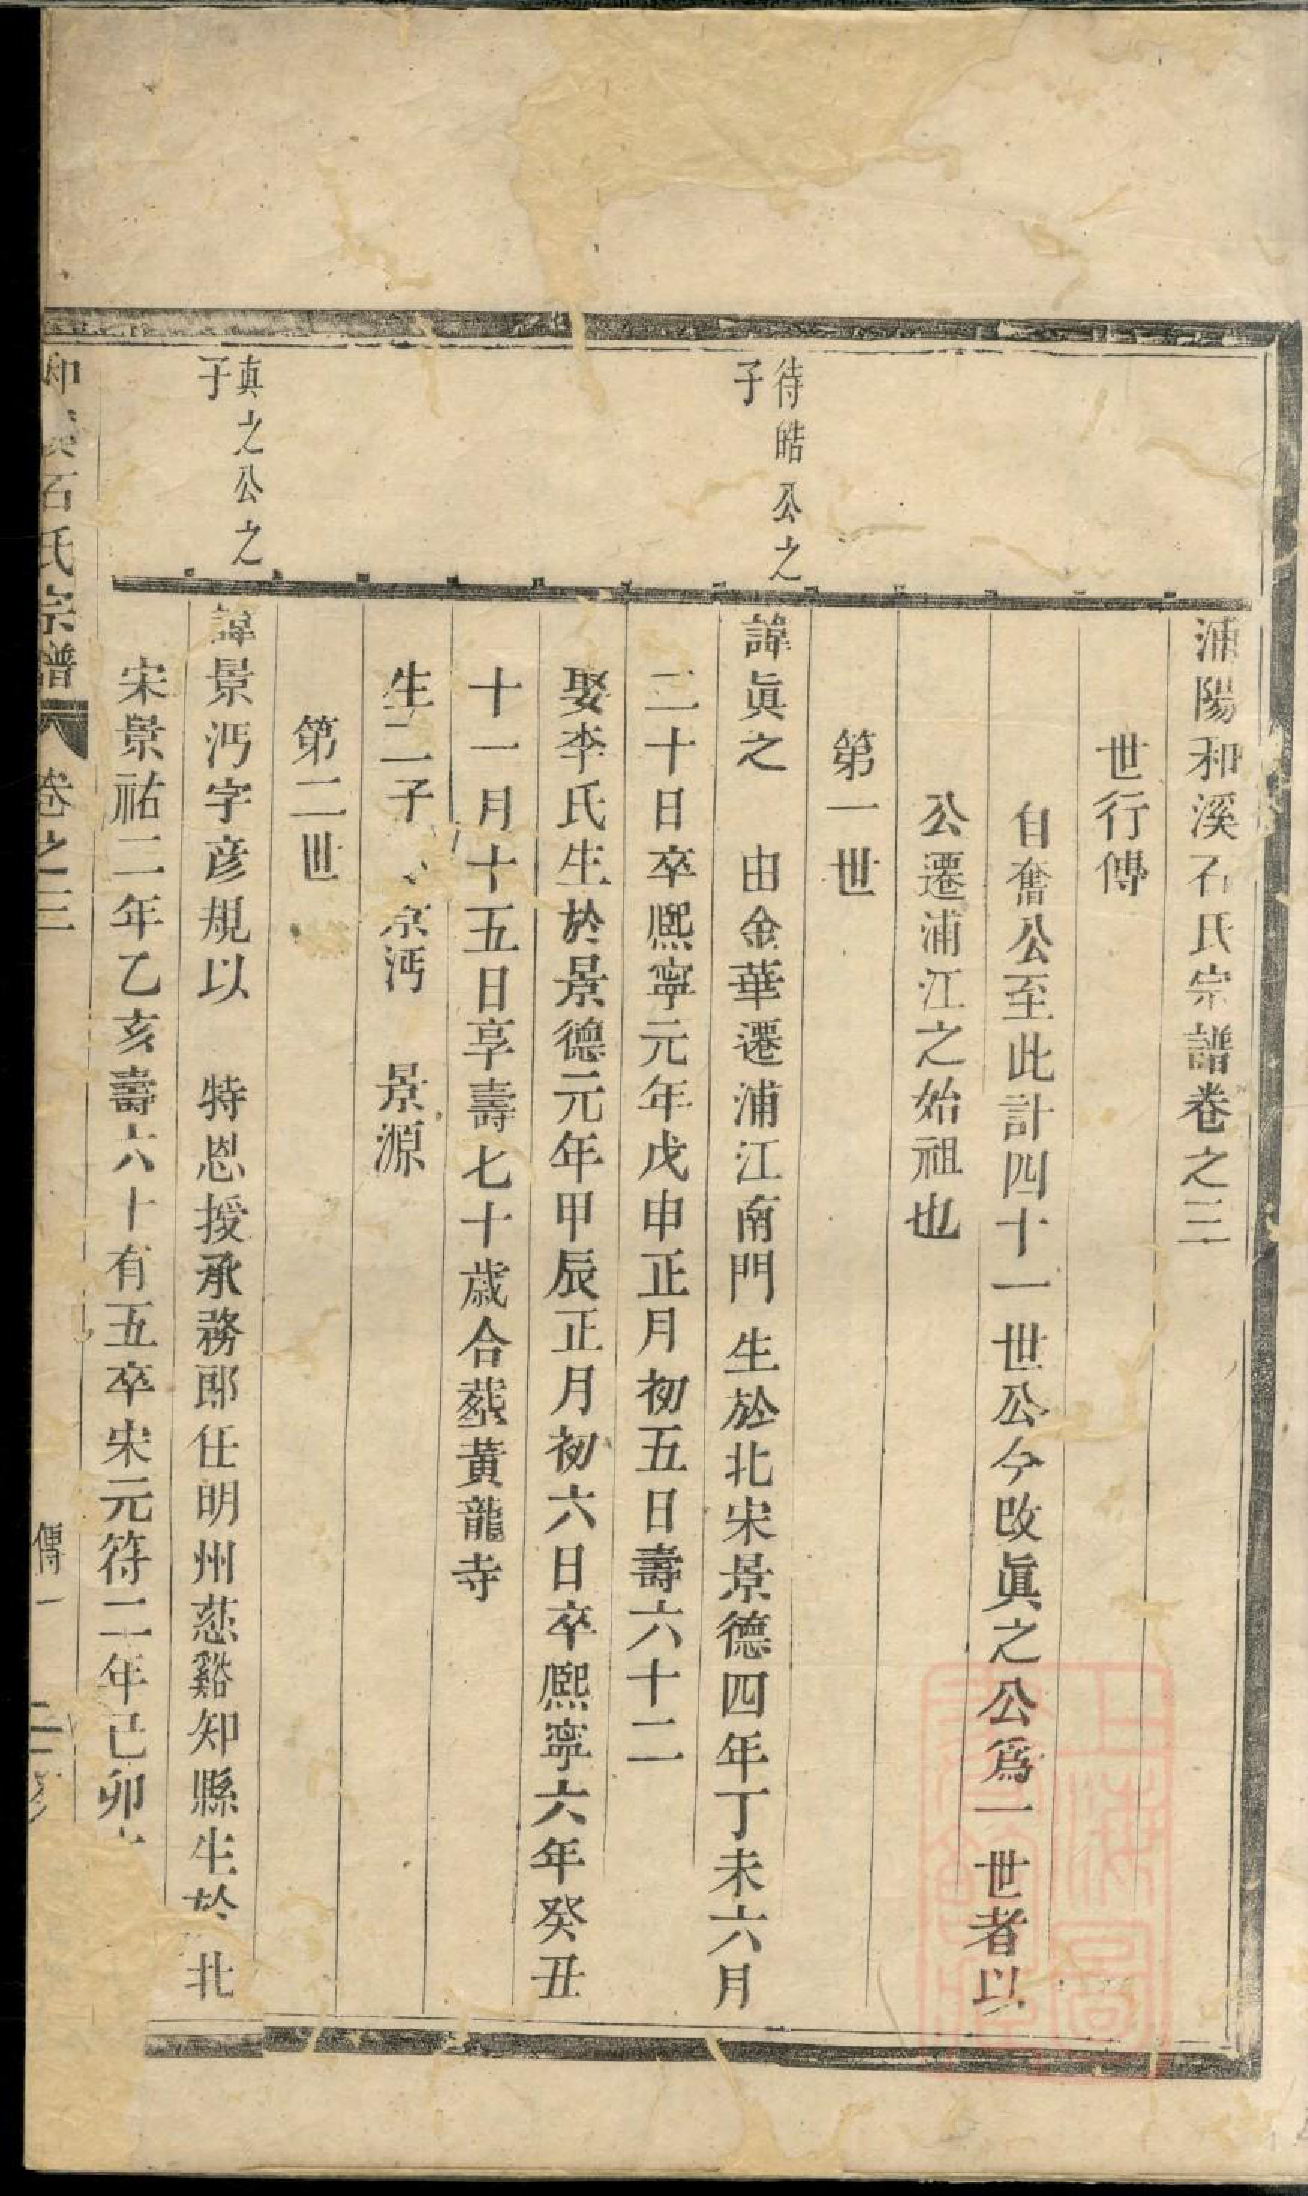 浦陽和溪石氏宗譜卷之三
世行傳
自奮公至此計四十一世公今改眞之公爲一世者以
公遷浦江之始祖也
第一世
待皓公之
子
諱眞之　由金華遷浦江南門生於北宋景德四年丁未六月
二十日卒熈寧元年戊申正月初五日壽六十二
娶李氏生於景德元年甲辰正月初六日卒熈寧六年癸丑
十一月十五日享壽七十歲合葬黃龍寺
生二子　景沔　景源
第二世
眞之公之
子
諱景沔字彦規以　特恩授承務郎任明州慈谿知縣生於北
宋景祐二年乙亥壽六十有五卒宋元符二年己卯
石氏宗譜　卷之三　傳一